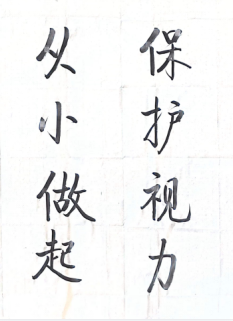 保护视力
从小做起